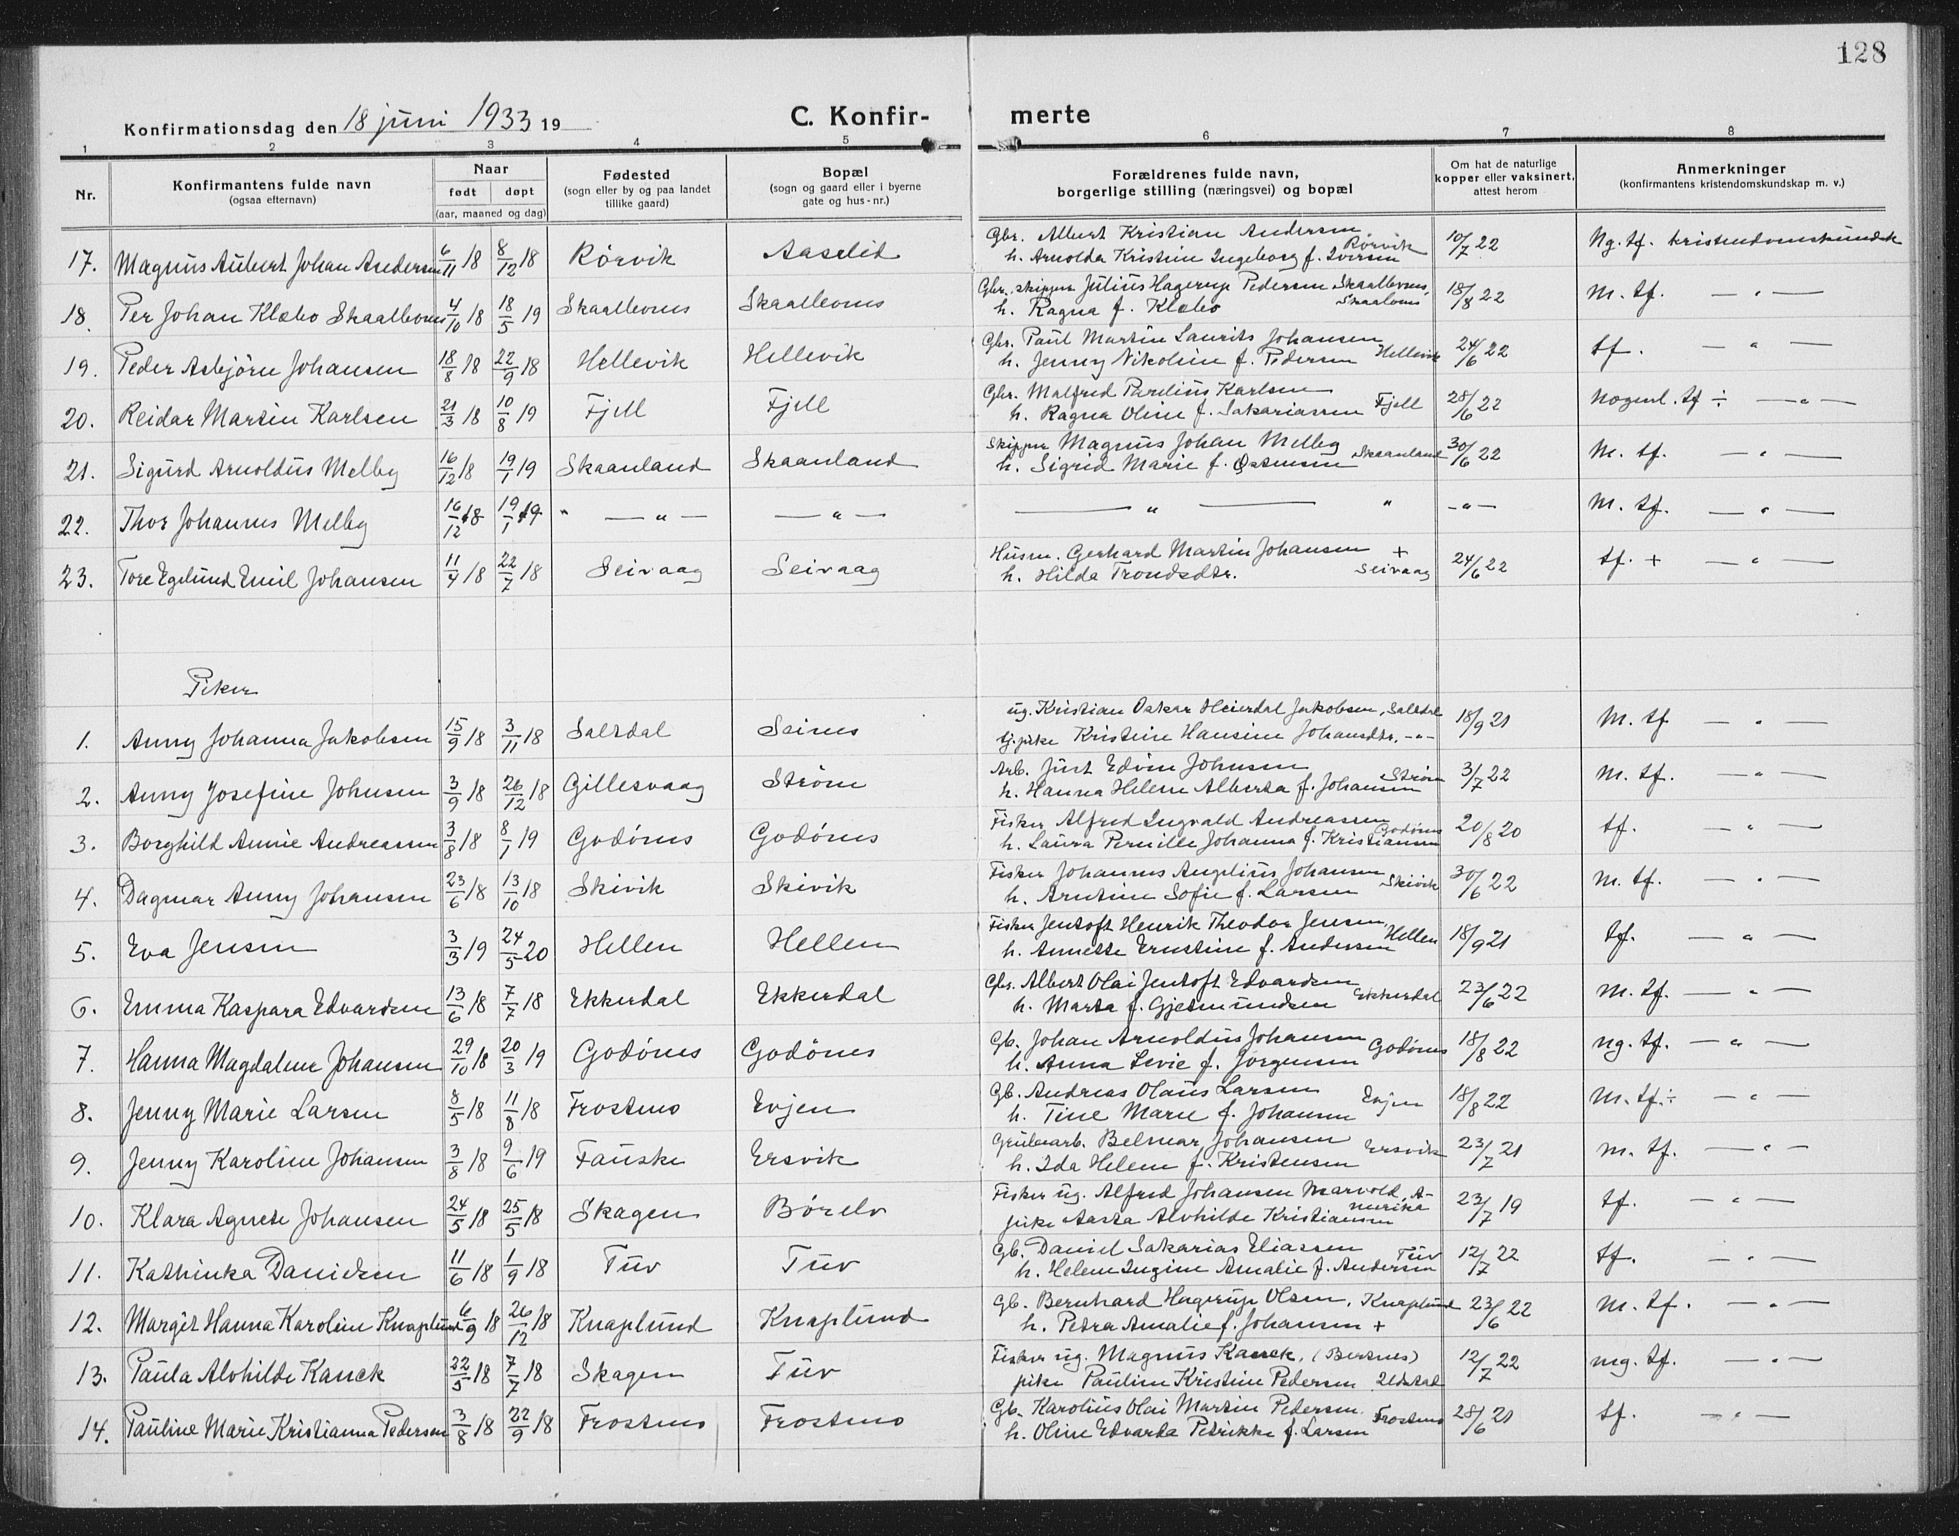 128
Konfirmationsdag den 18 juni 1933 19
C. Konfir-
merte
1 2 3 4 5 6 7 8
Nr. Konfirmantens fulde navn (ogsaa efternavn) Naar født døpt (aar, maaned og dag) Fødested (sogn eller by og paa landet tillike gaard) Bopæl (sogn og gaard eller i byerne gate og hus-nr.) Forældrenes fulde navn, borgerlige stilling (næringsvei) og bopæl Om hat de naturlige kopper eller vaksinert, attest herom Anmerkninger (konfirmantens kristendomskundskap m. v.)
17. Magnus Aubert Johan Andersen 6/11 18 8/12 18 Rørvik Aaselid Gbr. Albert Kristian Andersen Rørvik 10/7 22 Ng. tf. kristendomskundsk
h. Arnolda Kristine Ingeborg f. Iversen
18. Per Johan Klæbo Skaalbones 4/10 18 18/5 19 Skaalbones Skaalbones Gbr. skipper Julius Hagerup Pedersen Skaalbones, 18/8 22 M. tf. — " —
h. Ragna f. Klæbo Skaalbones
19. Peder Asbjørn Johansen 18/8 18 22/9 18 Hellevik Hellevik Gbr. Paul Martin Laurits Johansen 24/6 22 tf. — " —
h. Jenny Nikoline f. Pedersen Hellevik
20. Reidar Martin Karlsen 21/3 18 10/8 19 Fjell Fjell Gbr. Malfred Parelius Karlsen 28/6 22 Nogenl. tf ÷ — " —
h. Ragna Oline f. Sakariassen Fjell
21. Sigurd Arnoldus Melby 16/12 18 19/1 19 Skaanland Skaanland Skipper Magnus Johan Melby 30/6 22 M. tf. — " —
h. Sigrid Marie f. Østensen Skaanland
22. Thor Johannes Melby 16/12 18 19/1 19 " — " — — " — — " — " — " — M. tf. — " —
23. Tore Egelund Emil Johansen 11/4 18 22/7 18 Seivaag Seivaag Husm. Gerhard Martin Johansen + 24/6 22 tf. + — " —
h. Hilda Trondsdtr. Seivaag
Piker
1. Anny Johanna Jakobsen 15/9 18 3/11 18 Saltdal Seines ug. Kristian Oskar Heierdal Jakobsen, Saltdal 18/9 21 M. tf — " —
tj.pike Kristine Hansine Johansdtr. - " -
2. Anny Josefine Johnsen 3/9 18 26/12 18 Gillesvaag Strøm Arb. Just Edvin Johnsen Strøm 3/7 22 M. tf. — " —
h. Hanna Helene Alberta f. Johansen
3. Borghild Annie Andreassen 3/8 18 8/1 19 Godønes Godønes Fisker Alfred Ingvald Andreassen Godønes 20/8 20 tf. — " —
h. Laura Pernille Johanna f. Kristiansen
4. Dagmar Anny Johansen 23/6 18 13/10 18 Skivik Skivik Fisker Johannes Angelius Johansen 30/6 22 M. tf. — " —
h. Arntine Sofie f. Larsen Skivik
5. Eva Jensen 3/3 19 24/5 20 Hellen Hellen Fisker Jentoft Henrik Theodor Jensen, 18/9 21 tf. — " —
h. Annette Ernstine f. Andersen Hellen
6. Emma Kaspara Edvardsen 13/6 18 7/7 18 Ekkerdal Ekkerdal Gbr. Albert Olai Jentoft Edvardsen 23/6 22 M. tf. — " —
h. Marta f. Gjetmundsen Ekkerdal
7. Hanna Magdalene Johansen 29/10 18 20/3 19 Godønes Godønes Gb. Johan Arnoldus Johansen 18/8 22 ng. tf. — " —
h. Anna Sevie f. Jørgensen Godønes
8. Jenny Marie Larsen 8/5 18 11/8 18 Frostmo Evjen Gb. Andreas Olaus Larsen 18/8 22 M. tf. ÷ — " —
h. Tine Marie f. Johansen Evjen
9. Jenny Karoline Johansen 3/8 18 9/6 19 Fauske Ersvik Grubearb. Belmar Johansen 23/7 21 M. tf. — " —
h. Ida Helene f. Kristensen Ersvik
10. Klara Agnete Johansen 24/5 18 25/5 18 Skagen Børelv Fisker ug. Alfred Johansen Marvold, A- 23/7 19 tf. — " —
pike Aasta Alvhilde Kristiansen merika
11. Kathinka Danielsen 11/6 18 1/9 18 Tuv Tuv Gb. Daniel Sakarias Eliassen Tuv 12/7 22 tf. — " —
h. Helene Ingine Amalie f. Andersen
12. Margit Hanna Karoline Knaplund 6/9 18 26/12 18 Knaplund Knaplund Gb. Bernhard Hagerup Olsen, Knaplund 23/6 22 M. tf. — " —
h. Petra Amalie f. Johansen +
13. Paula Alvhilde Kanck 22/5 18 7/7 18 Skagen Tuv Fisker ug. Magnus Kanck, (Bertnes) 12/7 22 mg. tf. — " —
pike Pauline Kristine Pedersen Ildstad
14. Pauline Marie Kristianna Pedersen 3/8 18 22/9 18 Frostmo Frostmo Gb. Karolius Olai Martin Pedersen 28/6 21 tf. — " —
h. Oline Edvarda Petrikke f. Larsen Frostmo